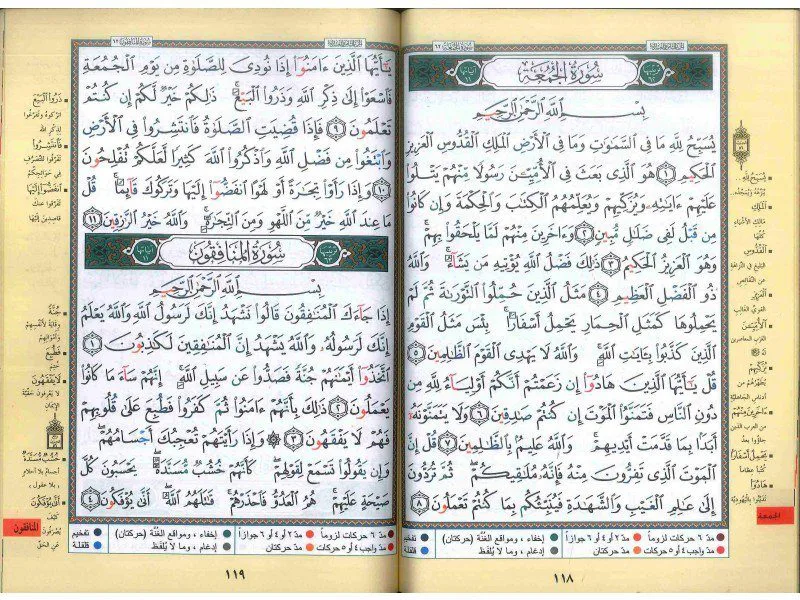 سُورَةُ الجُمُعَة
بِسْمِ اللَّهِ الرَّحْمَٰنِ الرَّحِيمِ
يُسَبِّحُ لِلَّهِ مَا فِي السَّمَٰوَٰتِ وَمَا فِي الْأَرْضِ الْمَلِكِ الْقُدُّوسِ الْعَزِيزِ
الْحَكِيمِ ﴿١﴾ هُوَ الَّذِي بَعَثَ فِي الْأُمِّيِّـۧنَ رَسُولًا مِّنْهُمْ يَتْلُوا۟
عَلَيْهِمْ ءَايَٰتِهِۦ وَيُزَكِّيهِمْ وَيُعَلِّمُهُمُ الْكِتَٰبَ وَالْحِكْمَةَ وَإِن كَانُوا۟
مِن قَبْلُ لَفِي ضَلَٰلٍ مُّبِينٍ ﴿٢﴾ وَءَاخَرِينَ مِنْهُمْ لَمَّا يَلْحَقُوا۟ بِهِمْ
وَهُوَ الْعَزِيزُ الْحَكِيمُ ﴿٣﴾ ذَٰلِكَ فَضْلُ اللَّهِ يُؤْتِيهِ مَن يَشَآءُ وَاللَّهُ
ذُو الْفَضْلِ الْعَظِيمِ ﴿٤﴾ مَثَلُ الَّذِينَ حُمِّلُوا۟ التَّوْرَىٰةَ ثُمَّ لَمْ
يَحْمِلُوهَا كَمَثَلِ الْحِمَارِ يَحْمِلُ أَسْفَارًا بِئْسَ مَثَلُ الْقَوْمِ
الَّذِينَ كَذَّبُوا۟ بِـَٔايَٰتِ اللَّهِ وَاللَّهُ لَا يَهْدِي الْقَوْمَ الظَّٰلِمِينَ ﴿٥﴾
قُلْ يَٰٓأَيُّهَا الَّذِينَ هَادُوٓا۟ إِن زَعَمْتُمْ أَنَّكُمْ أَوْلِيَآءُ لِلَّهِ مِن
دُونِ النَّاسِ فَتَمَنَّوُا۟ الْمَوْتَ إِن كُنتُمْ صَٰدِقِينَ ﴿٦﴾ وَلَا يَتَمَنَّوْنَهُۥٓ
أَبَدًۢا بِمَا قَدَّمَتْ أَيْدِيهِمْ وَاللَّهُ عَلِيمٌۢ بِالظَّٰلِمِينَ ﴿٧﴾ قُلْ إِنَّ
الْمَوْتَ الَّذِي تَفِرُّونَ مِنْهُ فَإِنَّهُۥ مُلَٰقِيكُمْ ثُمَّ تُرَدُّونَ
إِلَىٰ عَٰلِمِ الْغَيْبِ وَالشَّهَٰدَةِ فَيُنَبِّئُكُم بِمَا كُنتُمْ تَعْمَلُونَ ﴿٨﴾
يُسَبِّحُ لِلَّهِ
الْمَلِكِ
مالك الأشياء كلّها
الْقُدُّوسِ
الْعَزِيزِ
الْأُمِّيِّـۧنَ
يُزَكِّيهِمْ
الجمعة
مدّ ٦ حركات لزوماً مدّ ٢ أو ٤ أو ٦ جوازاً إخفاء، ومواقع الغُنّة (حركتان) تفخيم
مدّ واجب ٤ أو ٥ حركات مدّ حركتان إدغام، وما لا يُلفَظ قلقلة
١١٨
يَٰٓأَيُّهَا الَّذِينَ ءَامَنُوٓا۟ إِذَا نُودِيَ لِلصَّلَوٰةِ مِن يَوْمِ الْجُمُعَةِ
فَاسْعَوْا۟ إِلَىٰ ذِكْرِ اللَّهِ وَذَرُوا۟ الْبَيْعَ ذَٰلِكُمْ خَيْرٌ لَّكُمْ إِن كُنتُمْ
تَعْلَمُونَ ﴿٩﴾ فَإِذَا قُضِيَتِ الصَّلَوٰةُ فَانتَشِرُوا۟ فِي الْأَرْضِ
وَابْتَغُوا۟ مِن فَضْلِ اللَّهِ وَاذْكُرُوا۟ اللَّهَ كَثِيرًا لَّعَلَّكُمْ تُفْلِحُونَ
﴿١٠﴾ وَإِذَا رَأَوْا۟ تِجَٰرَةً أَوْ لَهْوًا انفَضُّوٓا۟ إِلَيْهَا وَتَرَكُوكَ قَآئِمًا قُلْ
مَا عِندَ اللَّهِ خَيْرٌ مِّنَ اللَّهْوِ وَمِنَ التِّجَٰرَةِ وَاللَّهُ خَيْرُ الرَّٰزِقِينَ ﴿١١﴾
سُورَةُ المُنَافِقُون
بِسْمِ اللَّهِ الرَّحْمَٰنِ الرَّحِيمِ
إِذَا جَآءَكَ الْمُنَٰفِقُونَ قَالُوا۟ نَشْهَدُ إِنَّكَ لَرَسُولُ اللَّهِ وَاللَّهُ يَعْلَمُ
إِنَّكَ لَرَسُولُهُۥ وَاللَّهُ يَشْهَدُ إِنَّ الْمُنَٰفِقِينَ لَكَٰذِبُونَ ﴿١﴾
اتَّخَذُوٓا۟ أَيْمَٰنَهُمْ جُنَّةً فَصَدُّوا۟ عَن سَبِيلِ اللَّهِ إِنَّهُمْ سَآءَ مَا كَانُوا۟
يَعْمَلُونَ ﴿٢﴾ ذَٰلِكَ بِأَنَّهُمْ ءَامَنُوا۟ ثُمَّ كَفَرُوا۟ فَطُبِعَ عَلَىٰ قُلُوبِهِمْ
فَهُمْ لَا يَفْقَهُونَ ﴿٣﴾ ۞ وَإِذَا رَأَيْتَهُمْ تُعْجِبُكَ أَجْسَامُهُمْ
وَإِن يَقُولُوا۟ تَسْمَعْ لِقَوْلِهِمْ كَأَنَّهُمْ خُشُبٌ مُّسَنَّدَةٌ يَحْسَبُونَ كُلَّ
صَيْحَةٍ عَلَيْهِمْ هُمُ الْعَدُوُّ فَاحْذَرْهُمْ قَٰتَلَهُمُ اللَّهُ أَنَّىٰ يُؤْفَكُونَ ﴿٤﴾
ذَرُوا۟ الْبَيْعَ
فَانتَشِرُوا۟
انفَضُّوٓا۟ إِلَيْهَا
جُنَّةً
فَطُبِعَ
لَا يَفْقَهُونَ
خُشُبٌ مُّسَنَّدَةٌ
أَنَّىٰ يُؤْفَكُونَ
المنافقون
مدّ ٦ حركات لزوماً مدّ ٢ أو ٤ أو ٦ جوازاً إخفاء، ومواقع الغُنّة (حركتان) تفخيم
مدّ واجب ٤ أو ٥ حركات مدّ حركتان إدغام، وما لا يُلفَظ قلقلة
١١٩